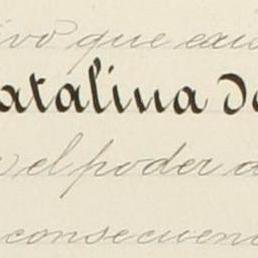 ivo que cau
atalina de
el poder d
consecuenc